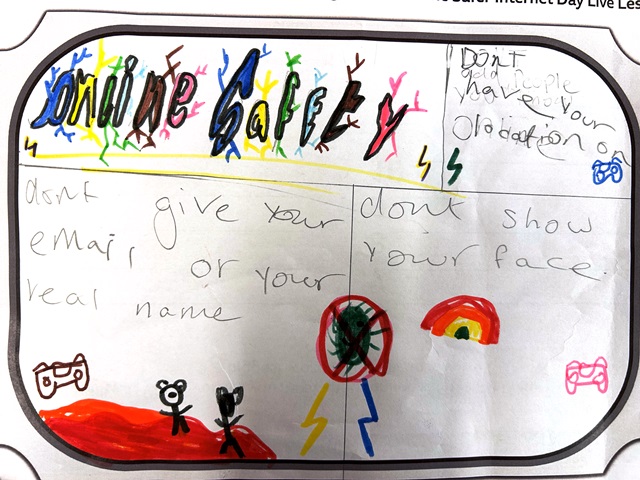 Safer Internet Day Live Les
Online Saftey
DONT
add people
have your
location on
dont give your
email or your
real name
dont show
your face.